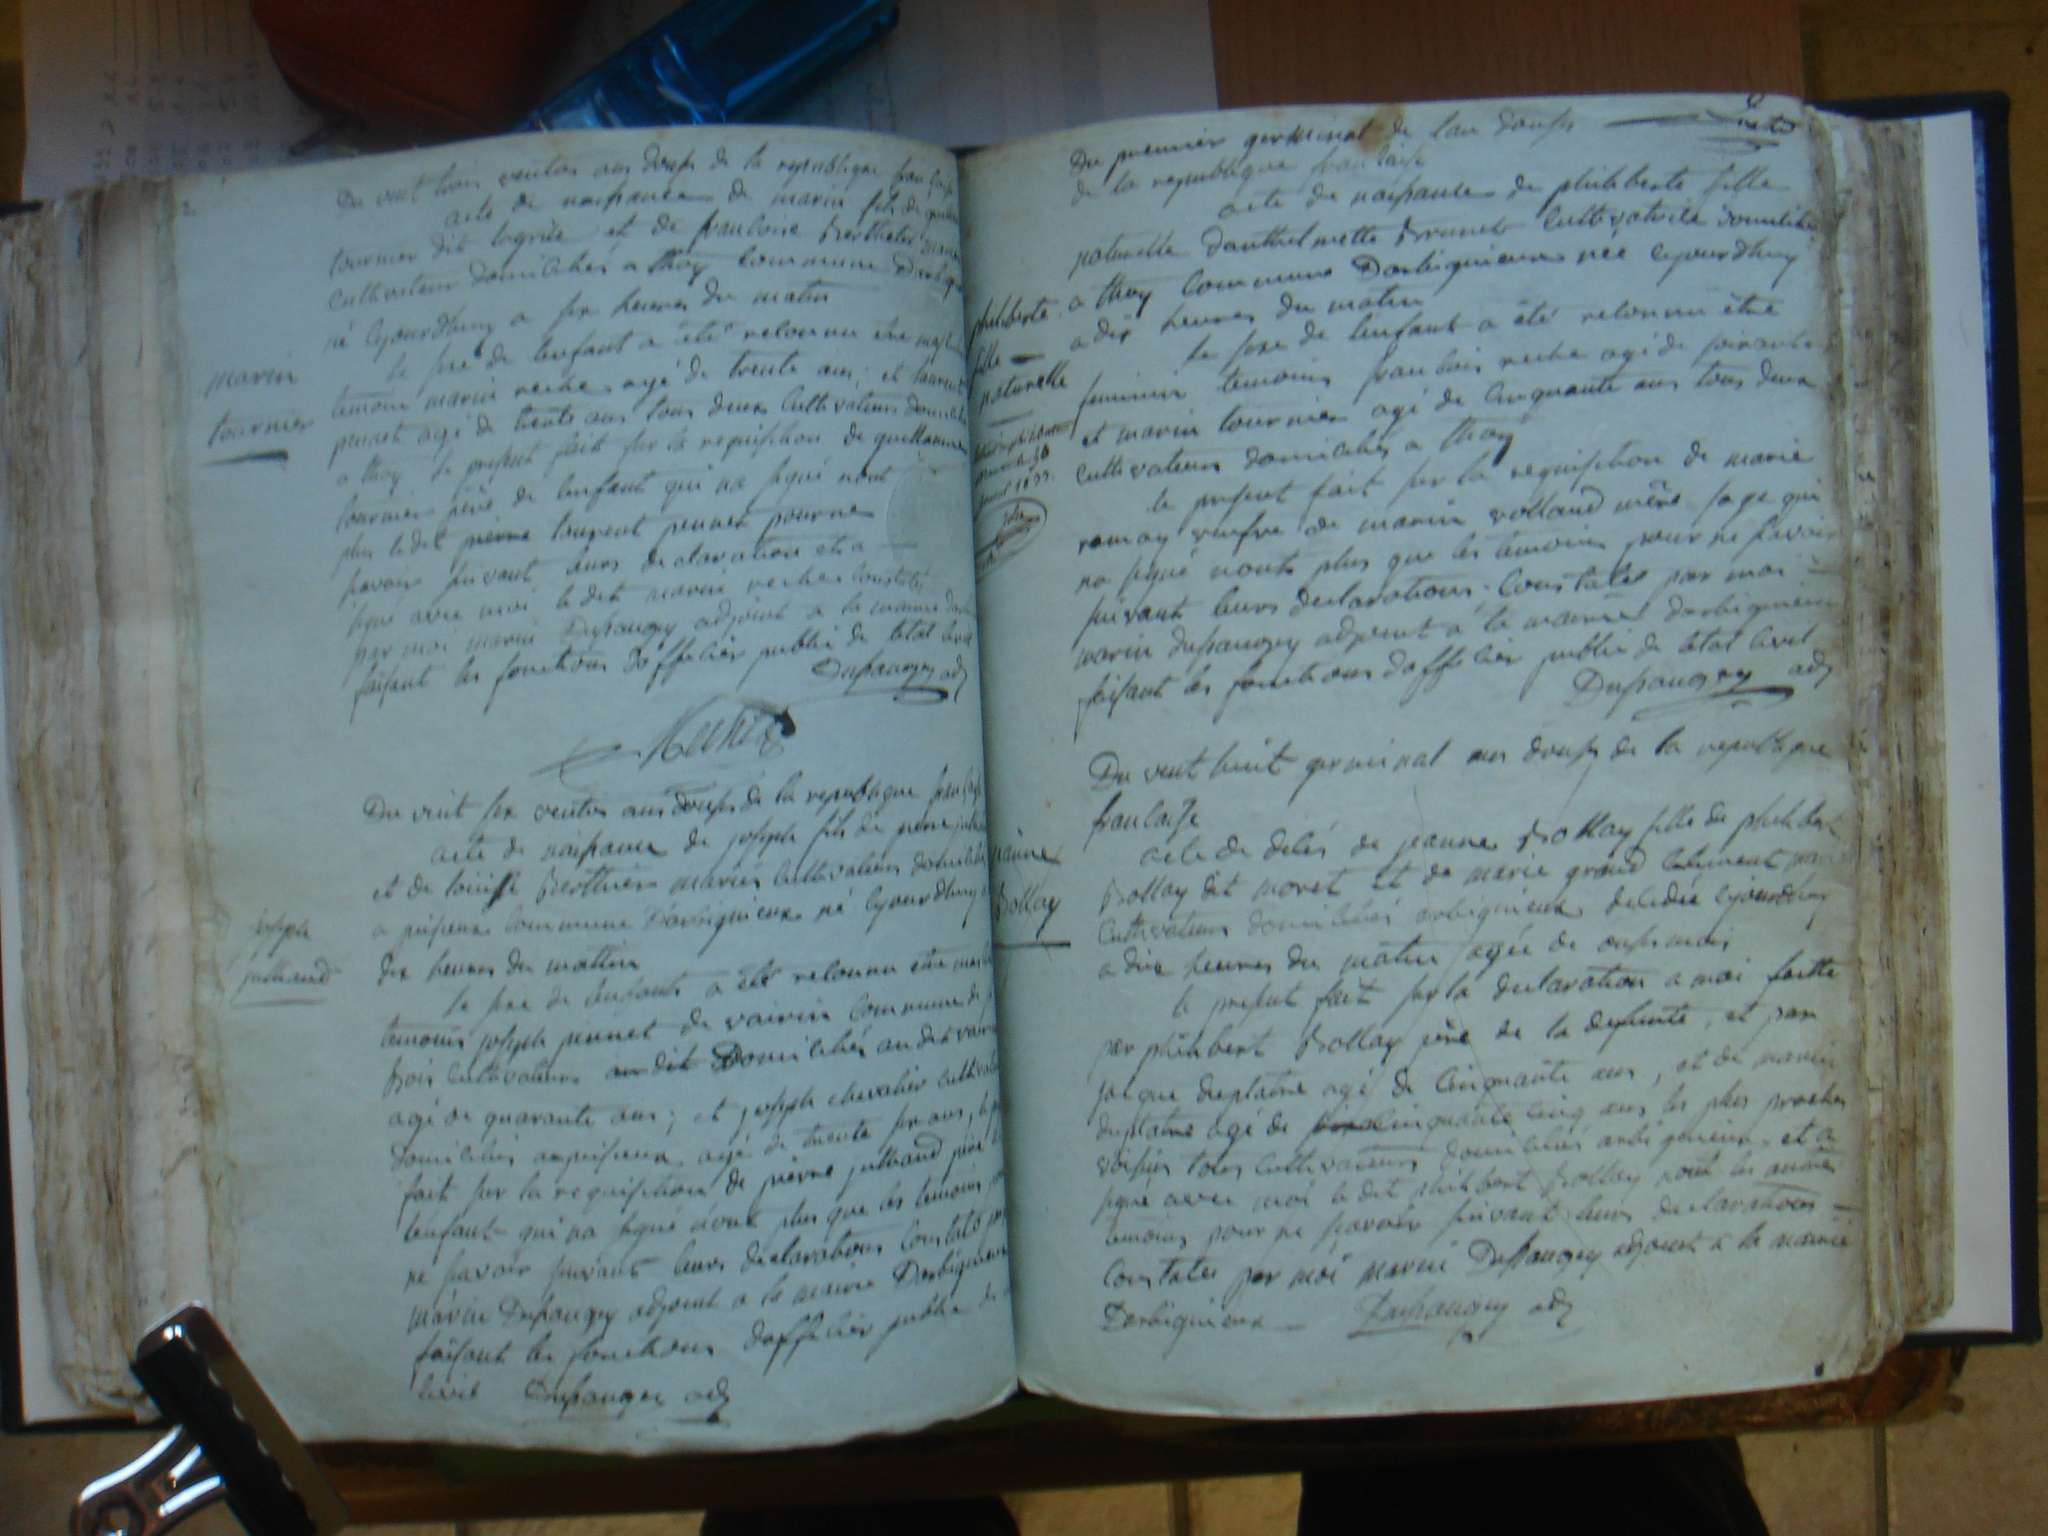 Du vent trois ventos ans douse de la republique francaise
acte de naissance de marin fils de
tournier dit et de francoise Berthelier
cultivateurs domiciliés a thoy commune Darbig
né cejourdhuy a six heures du matin
le sexe de lenfant a été reconnu etre
marin
tournier
temoin marin reche agé de trente ans; et laurent
pennet agé de trente ans tous deux cultivateurs domicilié
a thoy le present fait sur la requisition de guillaume
tournier père de lenfant qui na signé nont
plus ledit pierre laurent pennet pour ne
savoir suivant leurs declaration et a
signé avec moi le dit marin reche constaté
par moi marin Dusaugey adjoint a la mairie
faisant les fonctions dofficier public de letat civil
Dusaugey adj
Reche
Du vint six ventos ans douse de la republique
acte de naissance de joseph fils de pierre
et de louise Berthier mariés cultivateurs domicilié
a pisieux commune Darbiguieux né cejourdhuy a
dix heures du mattin
joseph
juthand
le sexe de lenfant a été reconnu etre
temoins joseph pennet de vairin commune de
Bois cultivateur au dit Domicilié au dit
agé de quarante ans; et joseph chevalier
domicilié a pisieux agé de trente six ans,
fait sur la requisition de pierre juthand père
lenfant qui na signé nont plus que les temoins
ne savoir suivant leurs declarations constaté
marin Dusaugey adjoint a la mairie Darbiguieux
faisant les fonctions dofficier public de
civil Dusaugey adj
Du premier germinal de lan douse
de la republique francaise
acte de naissance de philiberte fille
naturelle danthelmette Brunet cultivatrice domicilié
philiberte
fille
naturelle
a thoy commune Darbiguieux née cejourdhuy
a dix heures du matin
le sexe de lenfant a été reconnu être
feminin temoins francois reche agé de soixante
et marin tournier agé de cinquante ans tous deux
cultivateurs domiciliés a thoy
le present fait sur la requisition de marie
veufve de marin rolland mère sage qui
na signé nont plus que les temoins pour ne savoir
suivant leurs declarations. Constaté par moi
marin dusaugey adjoint a la mairie darbiguieux
faisant les fonctions dofficier public de letat civil
Dusaugey adj
Du vent huit germinal ans douse de la republique
francaise
acte de décés de jeanne Bollay fille de philibert
jeanne
Bollay
Bollay dit moret et de marie grand clement
cultivateurs domiciliés arbiguieux décédée cejourdhuy
a dix heures du matin agée de onse mois
le present fait sur la declaration a moi faitte
par philibert Bollay père de la defunte, et par
jacque duplatre agé de cinquante ans, et de marin
duplatre agé de cinquante cinq ans les plus proches
voisins tous cultivateurs domiciliés arbiguieux et a
signé avec moi le dit philibert Bollay nont les autres
temoins pour ne savoir suivant leurs declarations
constatés par moi marin Dusaugey adjoint a la mairie
Darbiguieux Dusaugey adj